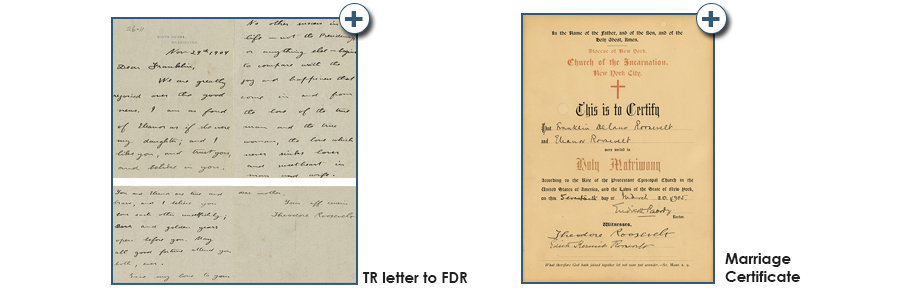 WHITE HOUSE,
WASHINGTON.
Nov 29th 1904
Dear Franklin,
We are greatly
rejoiced over the good
news. I am as fond
of Eleanor as if she were
my daughter; and I
like you, and trust you,
and believe in you.
No other success in
life — not the Presidency
or anything else — begins
to compare with the
joy and happiness that
come in and from
the love of the true
man and the true
woman, the love which
never sinks lover
and sweetheart in
man and wife.
You and Eleanor are true and
brave, and I believe you
love each other unselfishly;
and golden years
open before you. May
all good fortune attend you
both, ever.
Give my love to your
dear mother.
Your aff. cousin
Theodore Roosevelt
TR letter to FDR
In the Name of the Father, and of the Son, and of the
Holy Ghost, Amen.
Diocese of New York.
Church of the Incarnation.
New York City.
This is to Certify
That Franklin Delano Roosevelt
and Eleanor Roosevelt
were united in
Holy Matrimony
According to the Rite of the Protestant Episcopal Church in the
United States of America, and the Laws of the State of New York,
on this day of March 1905.
Endicott Peabody
Rector.
Witnesses.
Theodore Roosevelt
Edith Kermit Roosevelt
What therefore God hath joined together let not man put asunder—St. Mark x. 9.
Marriage
Certificate